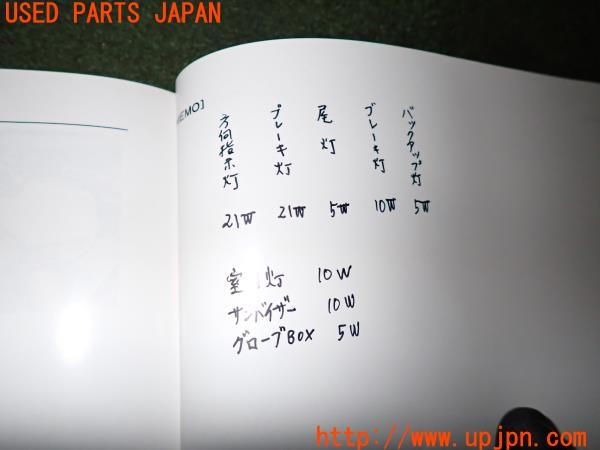 USED PARTS JAPAN
MEMO]
バックアップ灯 5W
ブレーキ灯 10W
尾灯 5W
ブレーキ灯 21W
方向指示灯 21W
室灯 10W
サンバイザー 10W
グローブBOX 5W
http://www.upjpn.com